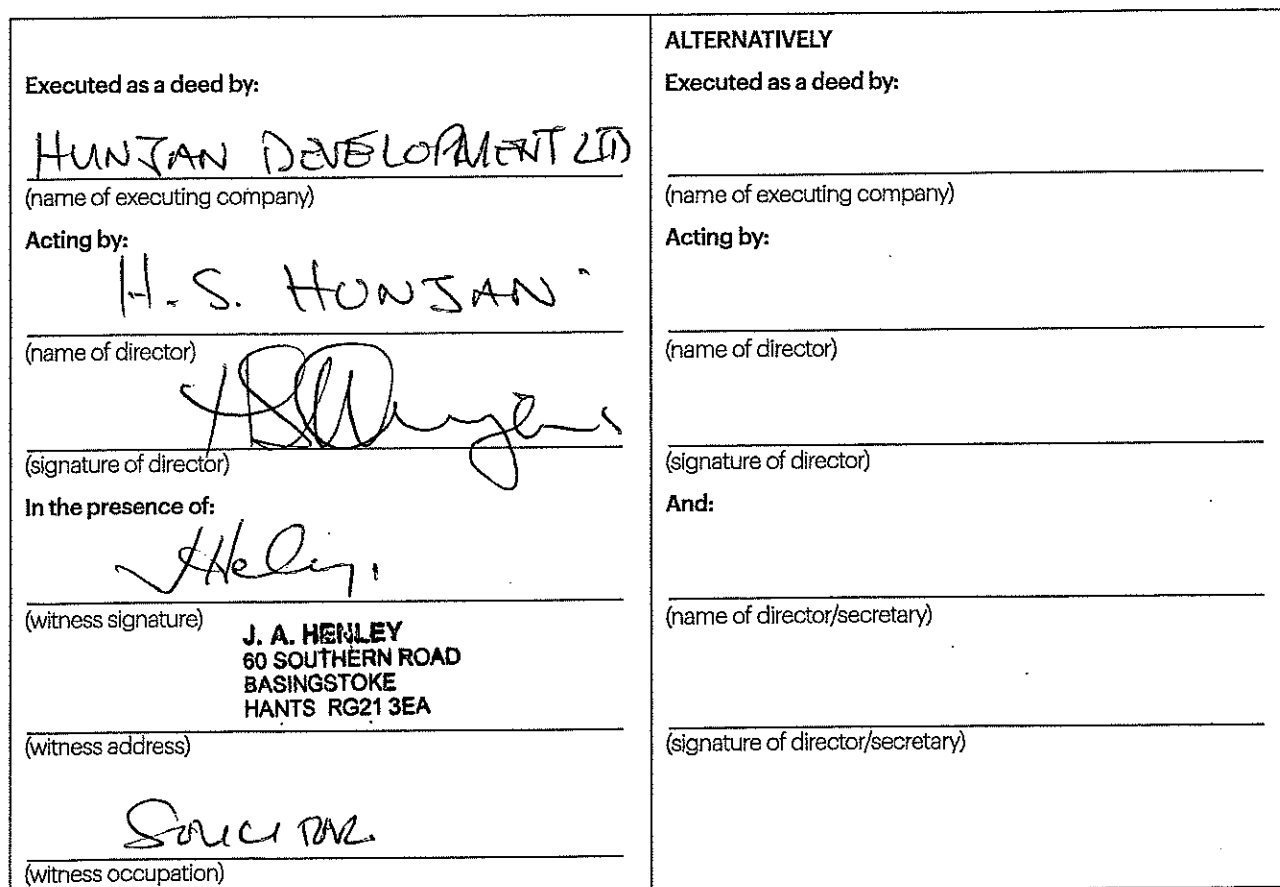 Executed as a deed by:
HUNJAN DEVELOPMENT LTD
(name of executing company)
Acting by:
H. S. HUNJAN
(name of director)
(signature of director)
In the presence of:
(witness signature)
J. A. HENLEY
60 SOUTHERN ROAD
BASINGSTOKE
HANTS RG21 3EA
(witness address)
SOLICITOR
(witness occupation)
ALTERNATIVELY
Executed as a deed by:
(name of executing company)
Acting by:
(name of director)
(signature of director)
And:
(name of director/secretary)
(signature of director/secretary)